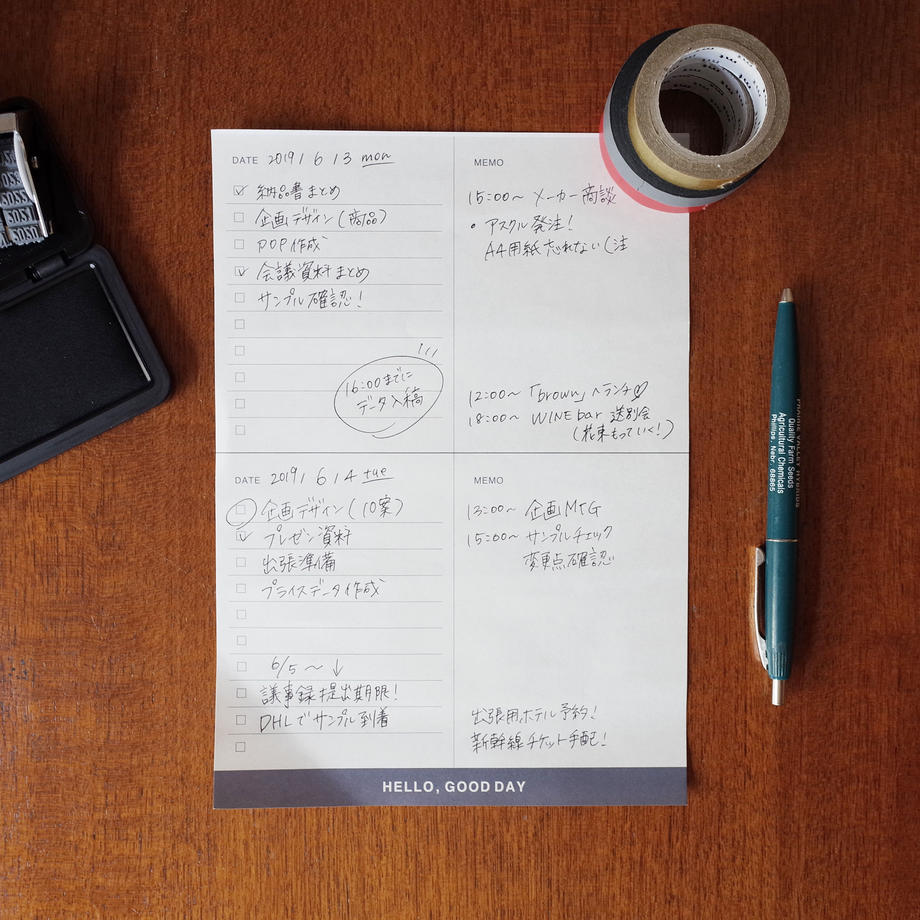 DATE 2019 / 6 / 3 mon
納品書まとめ
企画デザイン(商品)
POP作成
会議資料まとめ
サンプル確認!
16:00までに
データ入稿
MEMO
15:00〜 メーカー商談
• アスクル発注!
A4用紙忘れない(注
12:00〜 「brown」へランチ♡
18:00〜 WINE bar 送別会
(花束もっていく!)
DATE 2019 / 6 / 4 tue
企画デザイン(10案)
プレゼン資料
出張準備
プライスデータ作成
6/5 〜 ↓
議事録提出期限!
DHLでサンプル到着
MEMO
13:00〜 企画MTG
15:00〜 サンプルチェック
変更点確認
出張用ホテル予約!
新幹線チケット手配!
HELLO, GOOD DAY
Quality Farm Seeds
Agricultural Chemicals
Phillips, Nebr. 68865
mt
2020